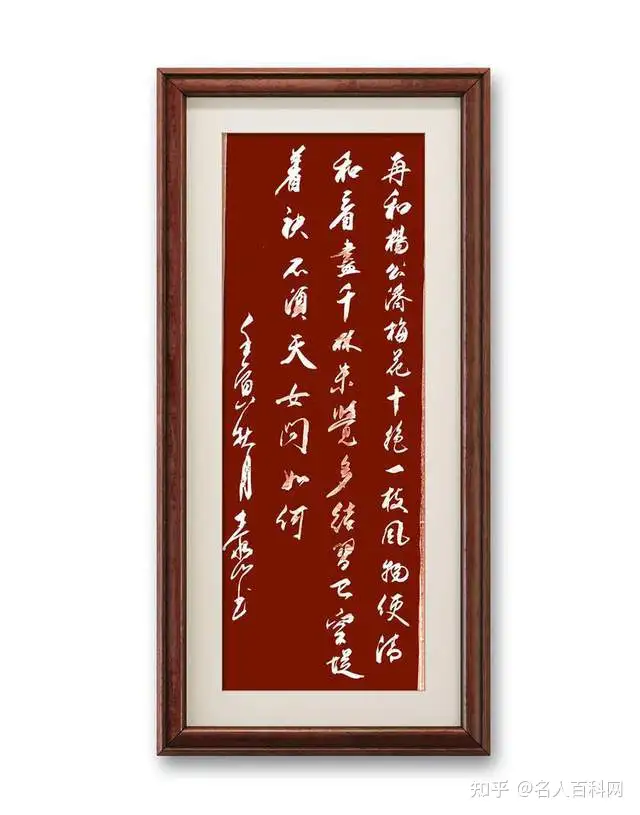 再和楊公濟梅花十絕一枝風物便清
和看盡千林未覺多結習已空堤
着袂不須天女問如何
壬寅秋月 书
知乎 @名人百科网